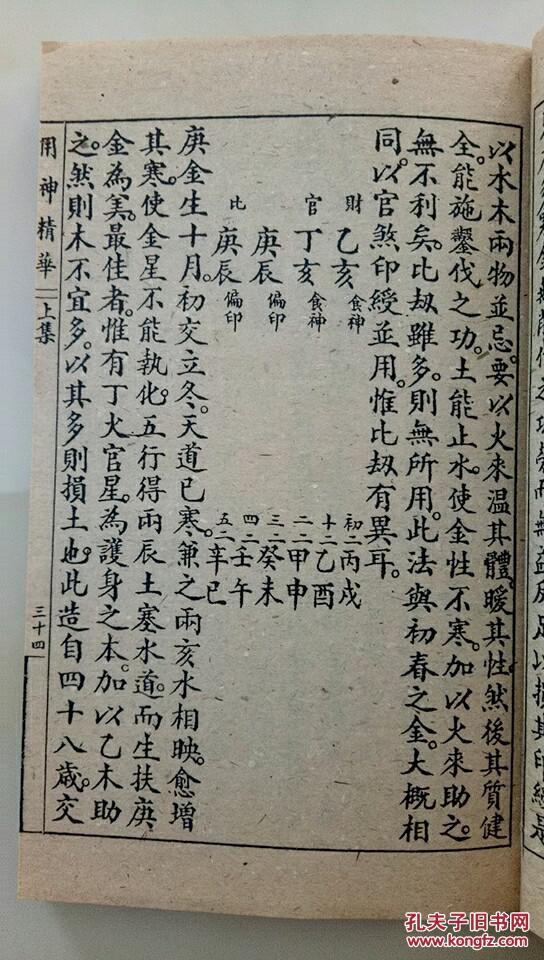 以水木兩物並忌。要以火來溫其體。暖其性。然後其質健
全。能施鑿伐之功。土能止水。使金性不寒。加以火來助之。
無不利矣。比刼雖多。則無所用。此法與初春之金。大概相
同。以官煞印綬並用。惟比刼有異耳。
財 乙亥 食神 初二 丙戌
官 丁亥 食神 十二 乙酉
庚辰 偏印 二二 甲申
比 庚辰 偏印 三二 癸未
四二 壬午
五二 辛巳
庚金生十月。初交立冬。天道已寒。兼之兩亥水相映。愈增
其寒。使金星不能執化。五行得兩辰土塞水道。而生扶庚
金為美。最佳者。惟有丁火官星。為護身之本。加以乙木助
之。然則木不宜多。以其多則損土也。此造自四十八歲。交
用神精華 上集 三十四
孔夫子旧书网
www.kongfz.com